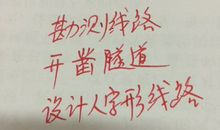 勘测线路
开凿隧道
设计人字形线路